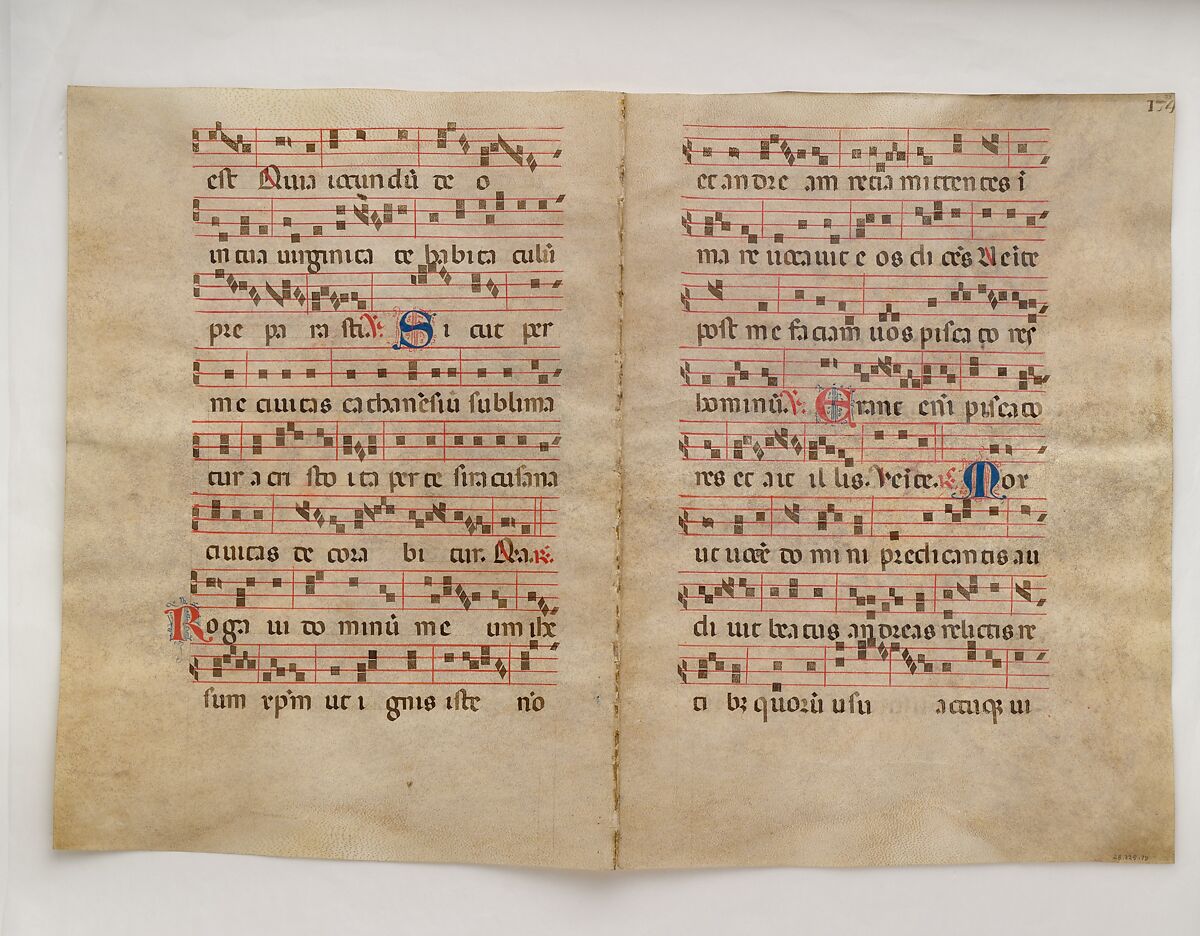 est Quia iocundū de o
in tua uirginita te habita culū
pre pa ra sti. ℣. Si cut per
me ciuitas cathanēsiū sublima
tur a cri sto i ta per te siracusana
ciuitas de cora bi tur. Qia. ℟.
Roga ui do minū me um ihe
sum xp̄m ut i gnis iste nō
174
et an dre am retia mittentes ī
ma re uocauit e os di cēs Ueite
post me faciam uos pisca to res
hominū. ℣. Erant enī piscato
res et ait il lis. Ueite. ℟. Mox
ut uocē do mi ni predicantis au
di uit beatus andreas relictis re
ti bꝫ quorū usu actuqꝫ ui
28.225.19